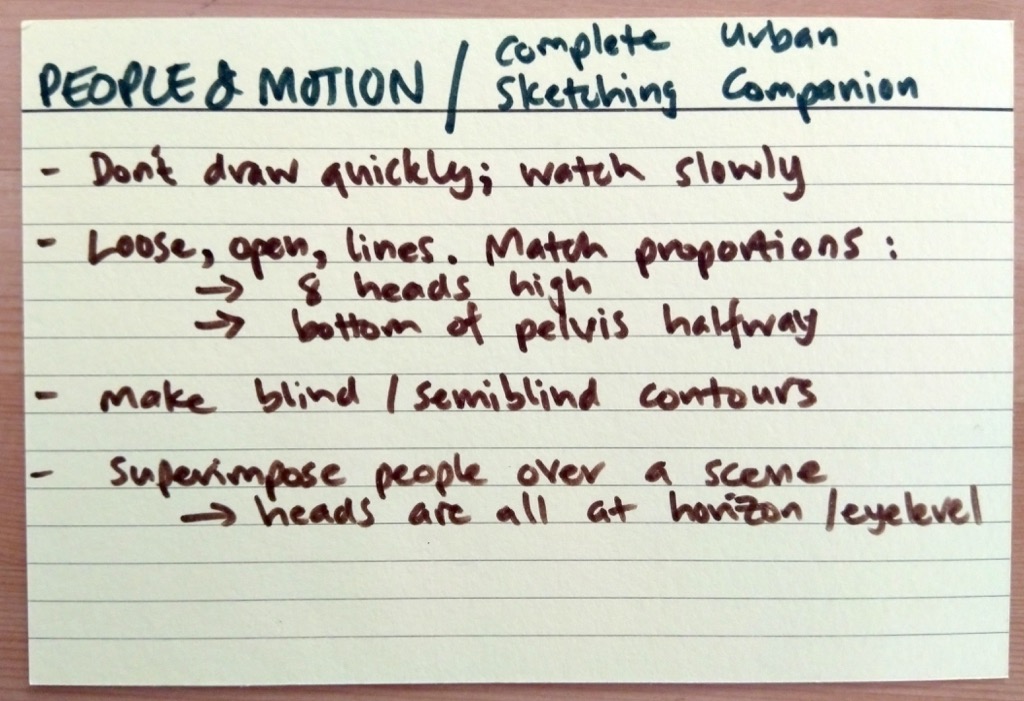 PEOPLE & MOTION / Complete Urban
Sketching Companion
- Don't draw quickly; watch slowly
- Loose, open, lines. Match proportions:
→ 8 heads high
→ bottom of pelvis halfway
- Make blind / semiblind contours
- Superimpose people over a scene
→ heads are all at horizon / eyelevel